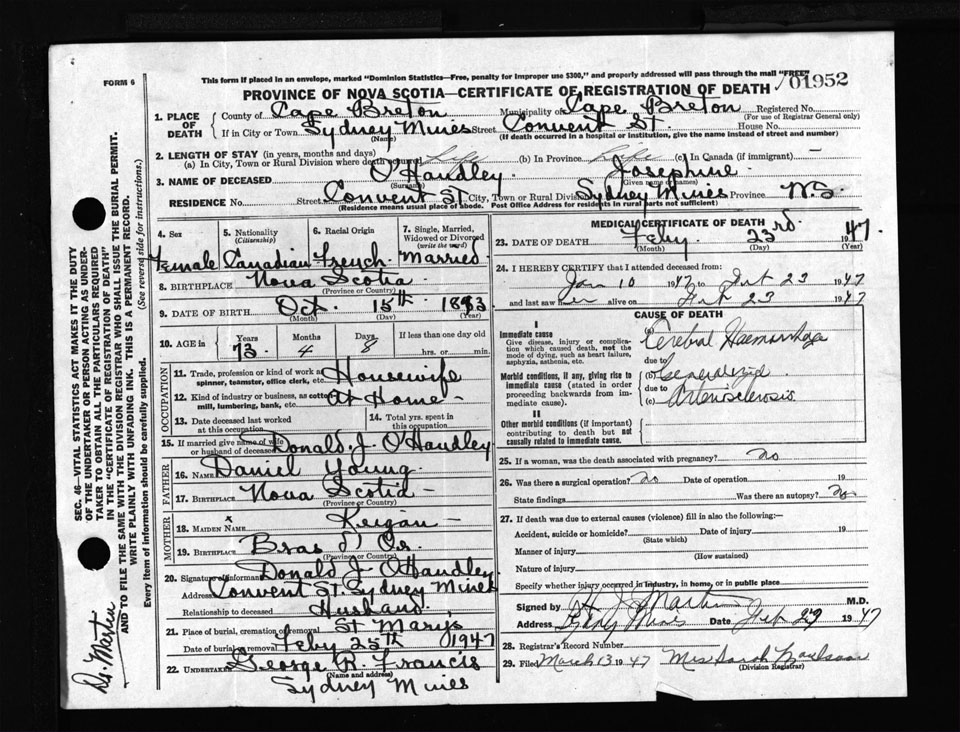 FORM 6
This form if placed in an envelope, marked "Dominion Statistics—Free, penalty for improper use $300," and properly addressed will pass through the mail "FREE"
01952
PROVINCE OF NOVA SCOTIA—CERTIFICATE OF REGISTRATION OF DEATH
1. PLACE OF DEATH County of Cape Breton Municipality of Cape Breton Registered No.
(For use of Registrar General only)
If in City or Town Sydney Mines Street Convent St House No.
(Name) (If death occurred in a hospital or institution, give the name instead of street and number)
2. LENGTH OF STAY (in years, months and days)
(a) In City, Town or Rural Division where death Life (b) In Province Life (c) In Canada (if immigrant) —
3. NAME OF DECEASED O'Handley Josephine
(Surname) (Given name or names)
RESIDENCE No. Street Convent St. City, Town or Rural Division Sydney Mines Province N.S
(Residence means usual place of abode. Post Office Address for residents in rural parts not sufficient)
4. Sex Female
5. Nationality (Citizenship) Canadian
6. Racial Origin French
7. Single, Married, Widowed or Divorced (write the word) Married
8. BIRTHPLACE Nova Scotia
(Province or Country)
9. DATE OF BIRTH Oct. 15th
(Month) (Day) (Year)
10. AGE in Years 73 Months 4 Days 8 If less than one day old hrs. or min.
OCCUPATION
11. Trade, profession or kind of work as spinner, teamster, office clerk, etc. Housewife
12. Kind of industry or business, as cotton mill, lumbering, bank, etc. At Home
13. Date deceased last worked at this occupation
14. Total yrs. spent in this occupation
15. If married give name of wife or husband of deceased Donald J O'Handley
FATHER
16. NAME Daniel Young
17. BIRTHPLACE Nova Scotia
(Province or Country)
MOTHER
18. MAIDEN NAME x Keigan
19. BIRTHPLACE Bras d Or.
(Province or Country)
20. Signature of informant Donald J O'Handley
Address Convent St. Sydney Mines
Relationship to deceased Husband
21. Place of burial, cremation or removal St Marys
Date of burial or removal Feby 25th 1947
22. UNDERTAKER George R. Francis
(Name and address)
Sydney Mines
MEDICAL CERTIFICATE OF DEATH
23. DATE OF DEATH Feby. 23rd 1947
(Month) (Day) (Year)
24. I HEREBY CERTIFY that I attended deceased from:
Jan 10 1947 to Feb 23 1947
and last saw her alive on Feb 23 1947
CAUSE OF DEATH
I
Immediate cause
Give disease, injury or complication which caused death, not the mode of dying, such as heart failure, asphyxia, asthenia, etc.
(a) Cerebral Haemorrhage
due to
Morbid conditions, if any, giving rise to immediate cause (stated in order proceeding backwards from immediate cause).
(b) Generalized
due to
(c) Arteriosclerosis
II
Other morbid conditions (if important) contributing to death but not causally related to immediate cause.
25. If a woman, was the death associated with pregnancy? no
26. Was there a surgical operation? no Date of operation 19
State findings Was there an autopsy? no
27. If death was due to external causes (violence) fill in also the following:—
Accident, suicide or homicide? Date of injury 19
(State which)
Manner of injury
(How sustained)
Nature of injury
Specify whether injury occurred in industry, in home, or in public place
Signed by H J Martin M.D.
Address Sydney Mines Date Feb 27 1947
28. Registrar's Record Number
29. Filed March 13 1947 Mrs Sarah
(Division Registrar)
SEC. 46—VITAL STATISTICS ACT MAKES IT THE DUTY
OF THE UNDERTAKER OR PERSON ACTING AS UNDERTAKER TO OBTAIN ALL THE PARTICULARS REQUIRED
IN THE "CERTIFICATE OF REGISTRATION OF DEATH" AND TO FILE THE SAME WITH THE DIVISION REGISTRAR WHO SHALL ISSUE THE BURIAL PERMIT.
WRITE PLAINLY WITH UNFADING INK. THIS IS A PERMANENT RECORD.
Every item of information should be carefully supplied. (See reverse side for instructions.)
Dr. Martin